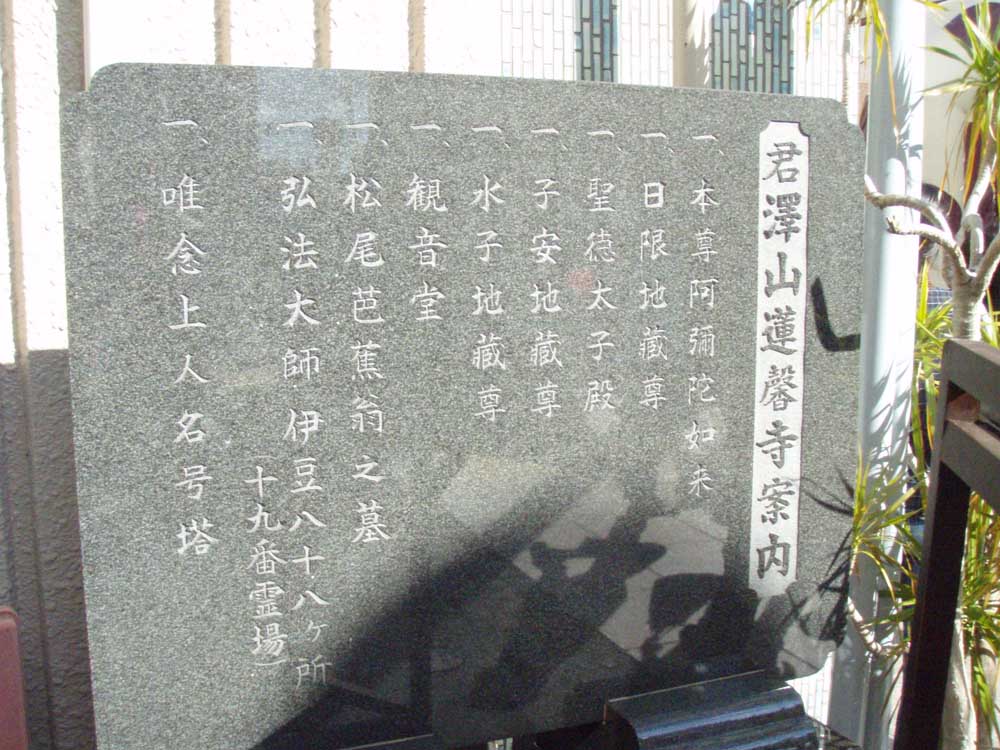 君澤山蓮馨寺案内
一、本尊阿彌陀如来
一、日限地蔵尊
一、聖徳太子殿
一、子安地蔵尊
一、水子地蔵尊
一、観音堂
一、松尾芭蕉翁之墓
一、弘法大師 伊豆八十八ヶ所
(十九番霊場)
一、唯念上人名号塔